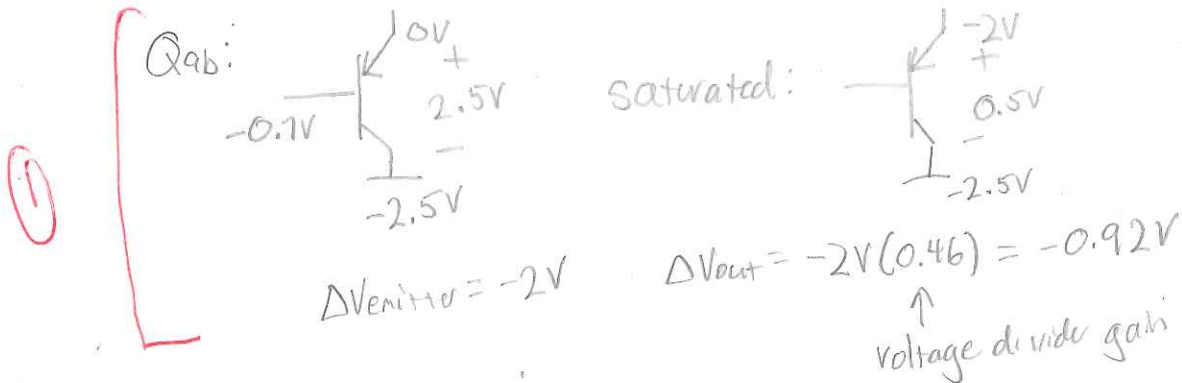 ①
Qab:
0V
+
2.5V
-
-0.7V
-2.5V
saturated:
-2V
+
0.5V
-
-2.5V
ΔVemitter = -2V
ΔVout = -2V(0.46) = -0.92V
↑
voltage divider gain